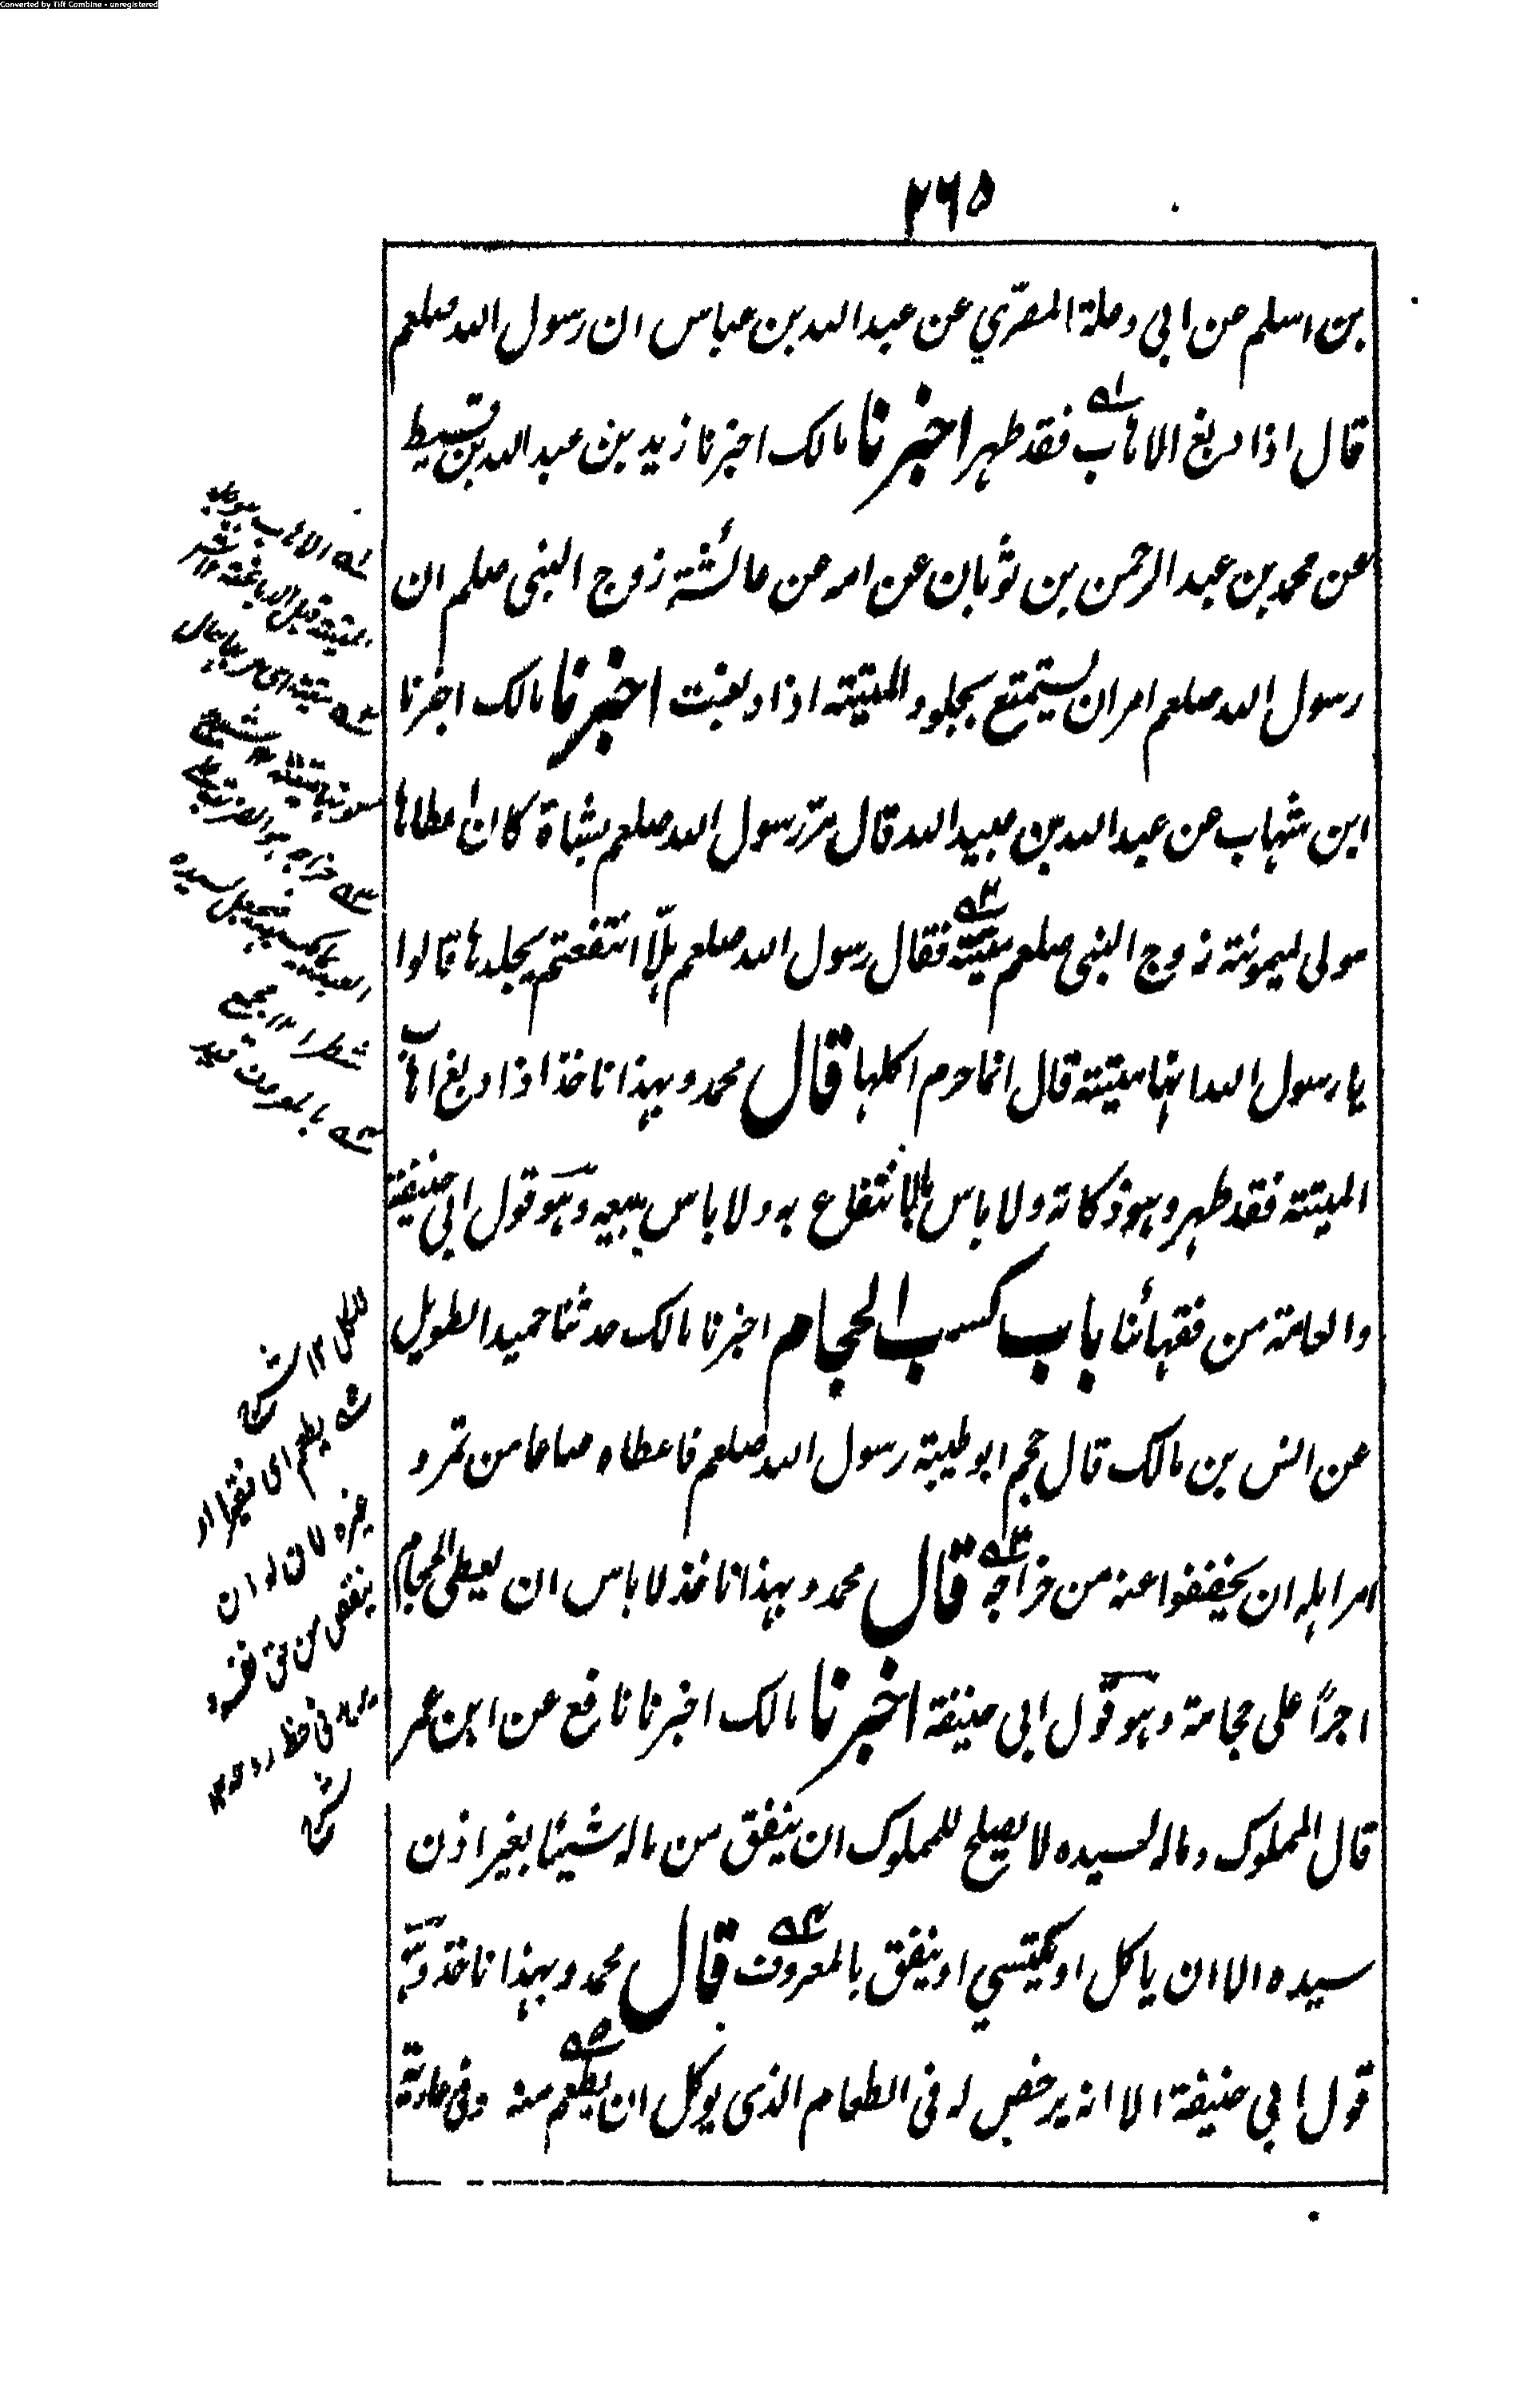 Converted by Tiff Combine - unregistered
۲۶۵
بن اسلم عن ابی وعلة المصّري عن عبد الله بن عباس ان رسول الله صلعم
قال اذا دبغ الاهاب فقد طهر اخبرنا مالک اخبرنا زید بن عبد الله بن قسیط
عن محمد بن عبد الرحمن بن ثوبان عن امه عن عائشة زوج النبی صلعم ان
رسول الله صلعم امر ان یستمتع بجلود المیتة اذا دبغت اخبرنا مالک اخبرنا
ابن شهاب عن عبد الله بن عبید الله قال مرّ رسول الله صلعم بشاة کان اعطاها
مولی لمیمونة زوج النبی صلعم میتة فقال رسول الله صلعم هلّا انتفعتم بجلدها قالوا
یا رسول الله انها میتة قال انما حرم اکلها قال محمد وبهذا ناخذ اذا دبغ اهاب
المیتة فقد طهر وهو ذکاته ولا باس بالانتفاع به ولا باس ببیعه وهو قول ابی حنیفة
والعامة من فقهائنا باب کسب الحجام اخبرنا مالک حدثنا حمید الطویل
عن انس بن مالک قال حجم ابو طیبة رسول الله صلعم فاعطاه صاعا من تمر و
امر اهله ان یخففوا عنه من خراجه قال محمد وبهذا ناخذ لا باس ان یعطی الحجام
اجرًا علی حجامة وهو قول ابی حنیفة اخبرنا مالک اخبرنا نافع عن ابن عمر
قال المملوک وماله لسیده لا یصلح للمملوک ان ینفق من ماله شیئا بغیر اذن
سیده الا ان یاکل او یکتسي او ینفق بالمعروف قال محمد وبهذا ناخذ وهو
قول ابي حنیفة الا انه یرخص له فی الطعام الذی یوکل ان یطعم منه وفی عاریة
۱ الاهاب
المیتة قبل الدباغة
۳ خراجه هو الضریبة علی
العبد
سیده
۴ بالمعروف
۵ یطعم ای فقیرا او
غیره لان له ان